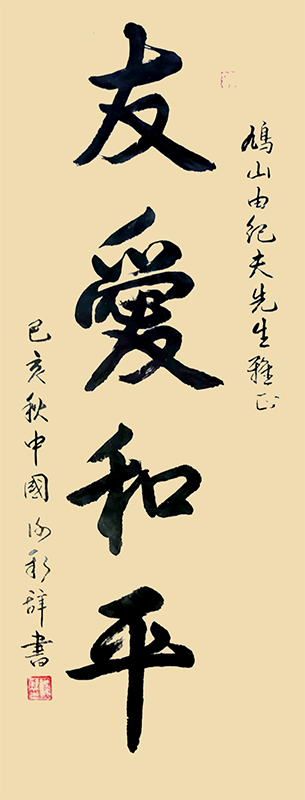 鳩山由紀夫先生雅正
友愛和平
己亥秋中國 彩辞書